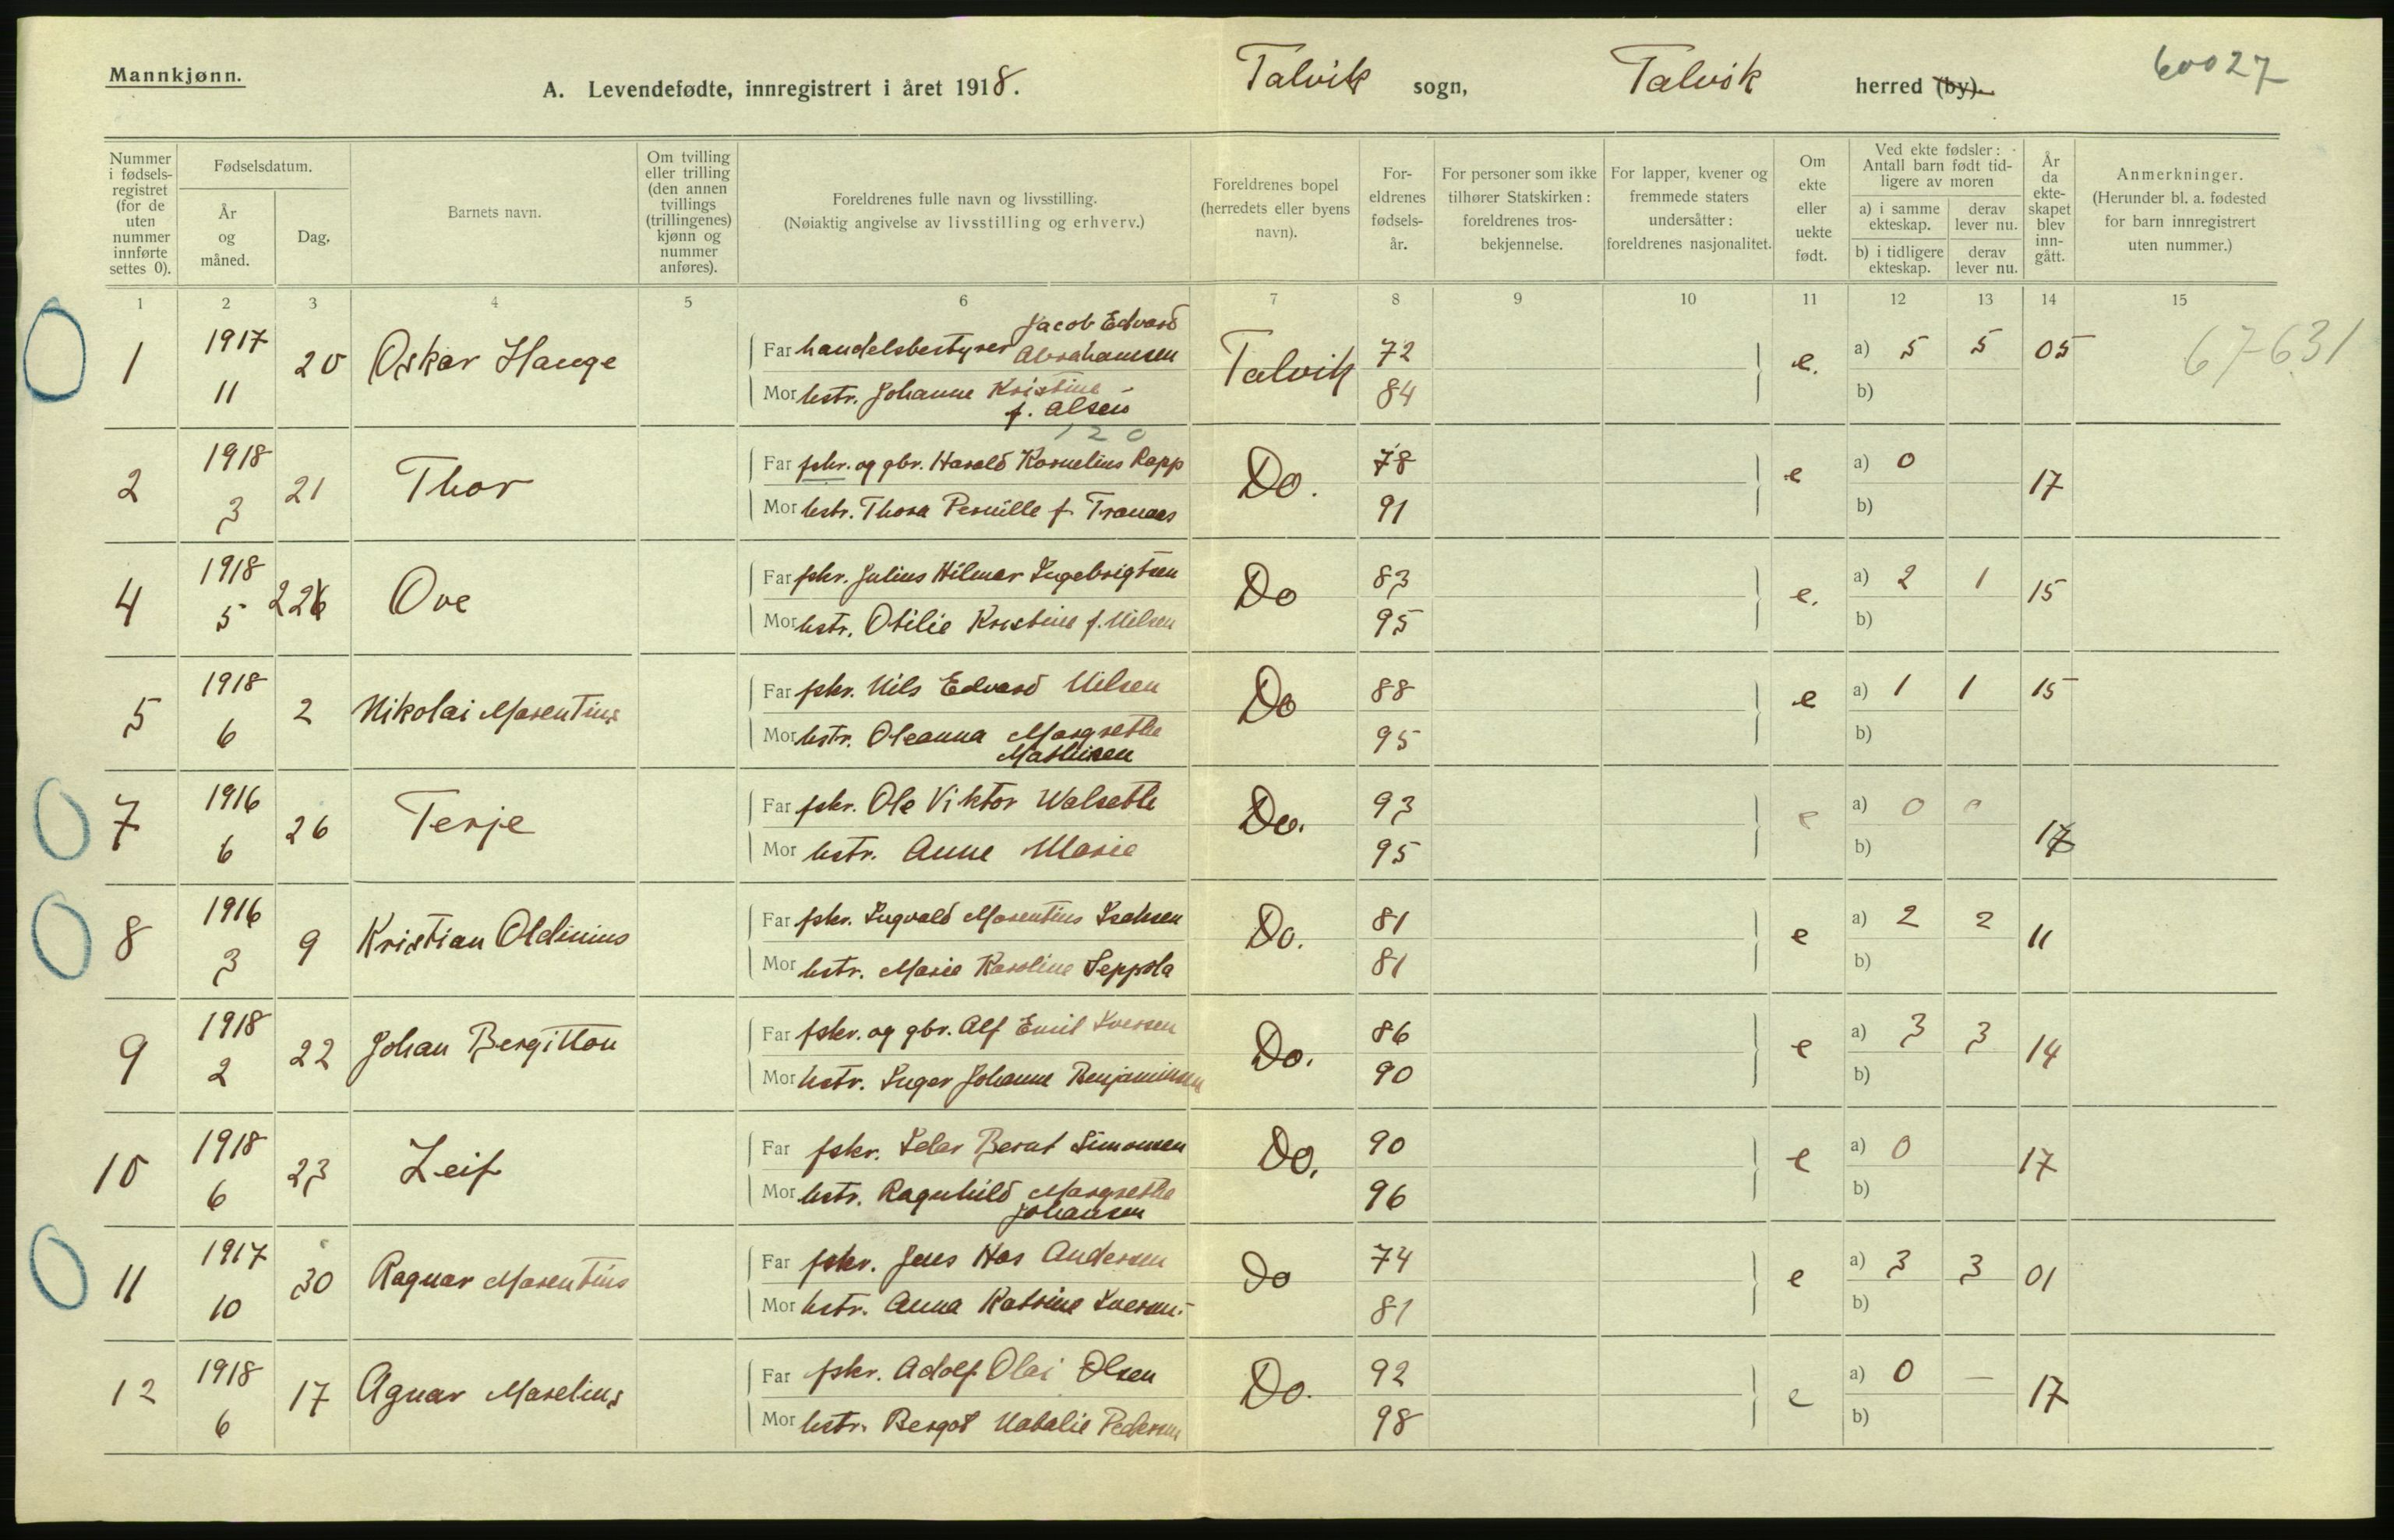 Mannkjønn.
A. Levendefødte, innregistrert i året 1918.
Talvik sogn, Talvik herred (by).
60027
Nummer i fødselsregistret (for de uten nummer innførte settes 0).
Fødselsdatum.
År og måned.
Dag.
Barnets navn.
Om tvilling eller trilling (den annen tvillings (trillingenes) kjønn og nummer anføres).
Foreldrenes fulle navn og livsstilling.
(Nøiaktig angivelse av livsstilling og erhverv.)
Foreldrenes bopel (herredets eller byens navn).
Foreldrenes fødselsår.
For personer som ikke tilhører Statskirken: foreldrenes trosbekjennelse.
For lapper, kvener og fremmede staters undersåtter: foreldrenes nasjonalitet.
Om ekte eller uekte født.
Ved ekte fødsler: Antall barn født tidligere av moren
a) i samme ekteskap. derav lever nu.
b) i tidligere ekteskap. derav lever nu.
År da ekteskapet blev inngått.
Anmerkninger.
(Herunder bl. a. fødested for barn innregistrert uten nummer.)
1 2 3 4 5 6 7 8 9 10 11 12 13 14 15
1 1917 11 20 Oskar Hauge
Far handelsbestyrer Jacob Edvard Abrahamsen Talvik 72 e. a) 5 5 05 67-631
Mor hstr. Johanne Kristine f. Olsen 84 b)
120
2 1918 3 21 Thor
Far fskr. og gbr. Harald Kornelius Rapp Do. 78 e a) 0 17
Mor hstr. Thora Pernille f. Tranaas 91 b)
4 1918 5 226 Ove
Far fskr. Julius Hilmar Ingebrigtsen Do 83 e. a) 2 1 15
Mor hstr. Otilie Kristine f. Nilsen 95 b)
5 1918 6 2 Nikolai Marentius
Far fskr. Nils Edvard Nilsen Do 88 e a) 1 1 15
Mor hstr. Oleanna Margrethe Mathisen 95 b)
7 1916 6 26 Terje
Far fskr. Ole Viktor Walsethe Do. 93 e a) 0 0 17
Mor hstr. Anne Marie 95 b)
8 1916 3 9 Kristian Oldinius
Far fskr. Ingvald Marentius Isaksen Do. 81 e a) 2 2 11
Mor hstr. Marie Karoline Seppola 81 b)
9 1918 2 22 Johan Bergitton
Far fskr. og gbr. Alf Emil Iversen Do. 86 e a) 3 3 14
Mor hstr. Inger Johanne Benjaminsen 90 b)
10 1918 6 23 Leif
Far fskr. Peder Berat Simonsen Do. 90 e a) 0 17
Mor hstr. Ragnhild Margrethe Johansen 96 b)
11 1917 10 30 Ragnar Marentius
Far fskr. Jens Has Andersen Do 74 e a) 3 3 01
Mor hstr. Anna Katrine Iversen 81 b)
12 1918 6 17 Agnar Marelius
Far fskr. Adolf Olai Olsen Do. 92 e a) 0 — 17
Mor hstr. Bergot Natalie Pedersen 98 b)